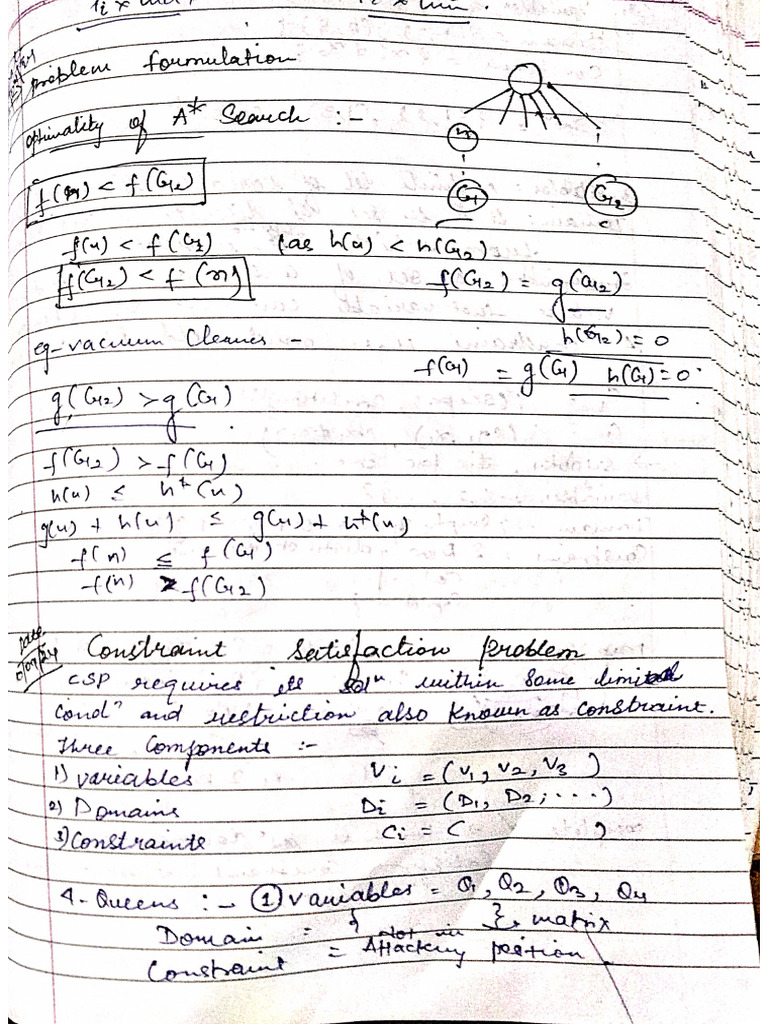 problem formulation
optimality of A* Search :-
n
G1 G2
f(n) < f(G2)
f(n) < f(G2) (as h(n) < h(G2)
f(G2) < f(n) f(G2) = g(G2)
h(G2) = 0
eg- vacuum Cleaner -
f(G1) = g(G1) h(G1) = 0
g(G2) > g(G1)
f(G2) > f(G1)
h(n) ≤ h*(n)
g(n) + h(n) ≤ g(n) + h*(n)
f(n) ≤ f(G1)
f(n) f(G2)
Date
Constraint Satisfaction problem
CSP requires its solⁿ within some limited
condⁿ and restriction also known as constraint.
Three Components :-
1) variables Vi = (V1, V2, V3 )
2) Domains Di = (D1, D2, ....)
3) Constraints Ci = C )
4-Queens :- ① variables = Q1, Q2, Q3, Q4
Domain = { }, matrix
Constraint = Not in Attacking position.